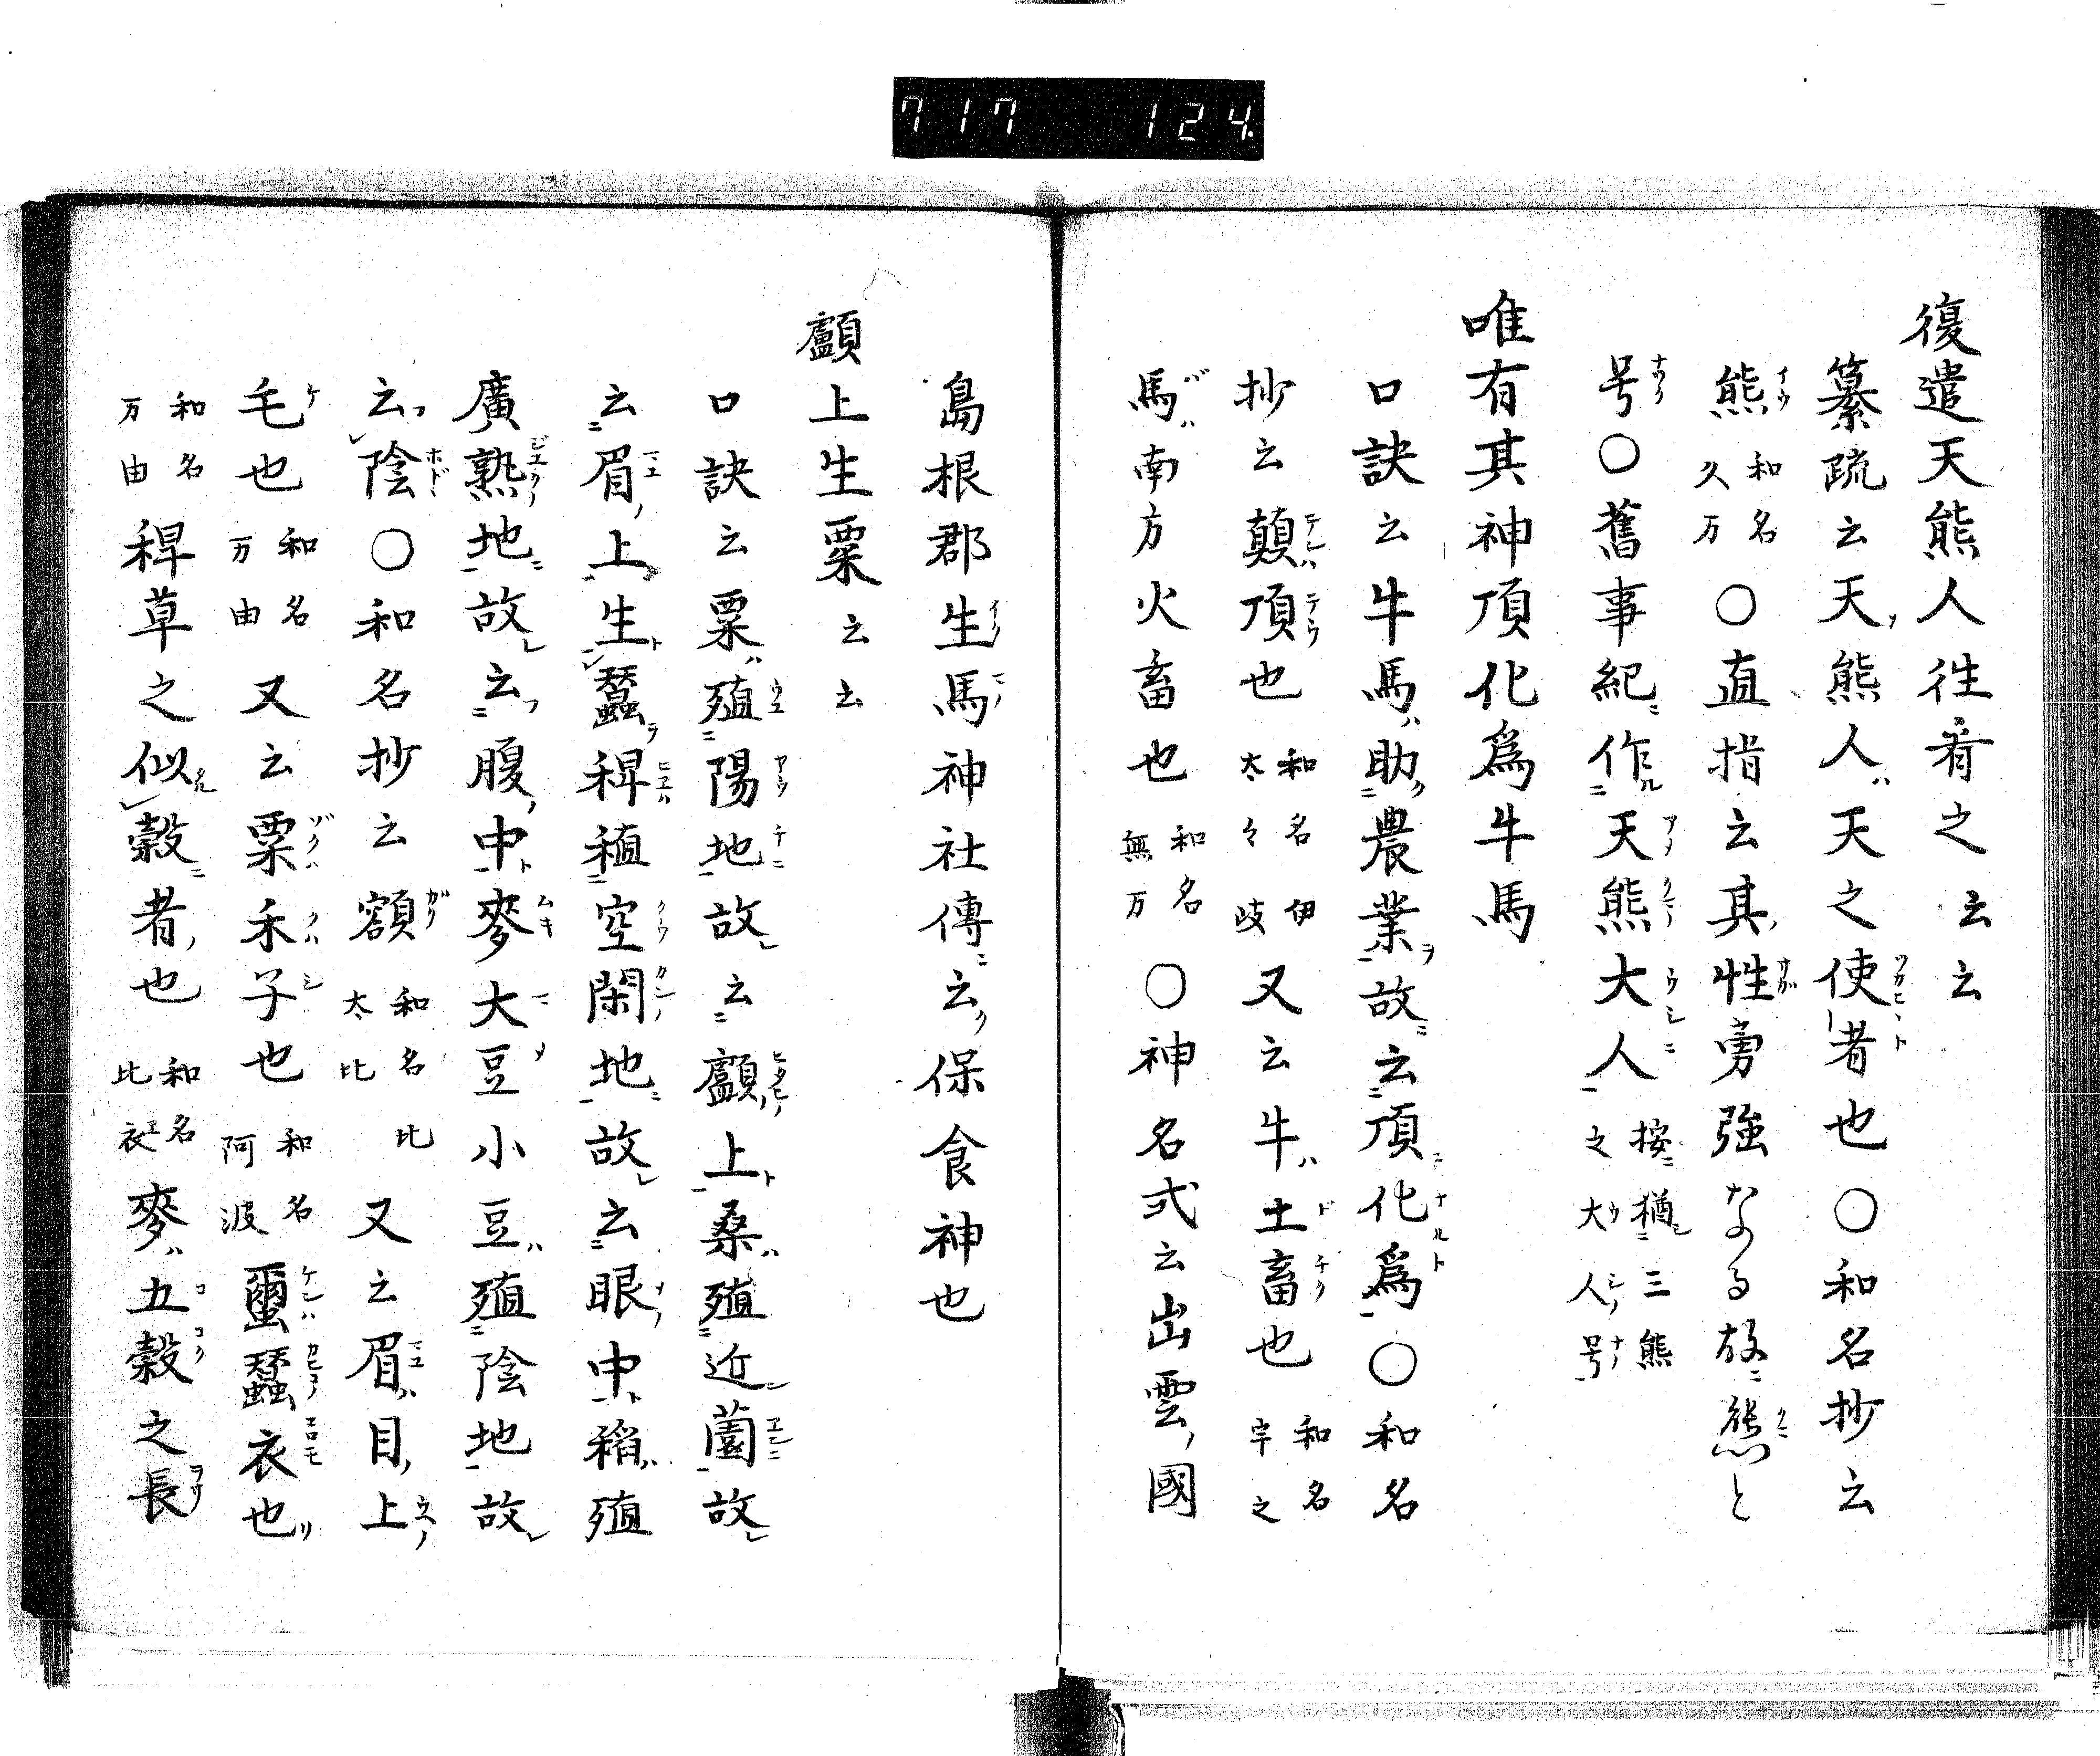 717 124.
復遣天熊人往看之云云
纂疏云天熊人ハ天之使者也○和名抄云
熊和名久万○直指云其性勇強なる故ニ熊と
号○舊事紀ニ作ル天熊大人ニ按ニ猶三熊之大人ノ号
唯有其神頂化爲牛馬
口訣云牛馬ハ助ク農業ヲ故ニ云頂化爲ト○和名
抄云顛ハ頂也和名伊太々岐又云牛ハ土畜也和名宇之
馬ハ南方火畜也和名無万○神名式云出雲ノ國
島根郡生馬神社傳ニ云ク保食神也
顱上生粟云云
口訣云粟ハ殖陽地ニ故云顱ノ上ト桑ハ殖近薗ニ故
云眉ノ上生ト蠶ヲ稗ハ稙空閑ノ地ニ故云眼ノ中ト稲ハ殖
廣熟ノ地ニ故云フ腹ノ中ト麥大豆小豆ハ殖陰地故
云フ陰○和名抄云額和名比太比又云眉ハ目ノ上ノ
毛也和名万由又云粟ハ禾子也和名阿波璽ハ蠶衣也
和名万由稗草之似ル穀ニ者也和名比衣麥ハ五穀之長